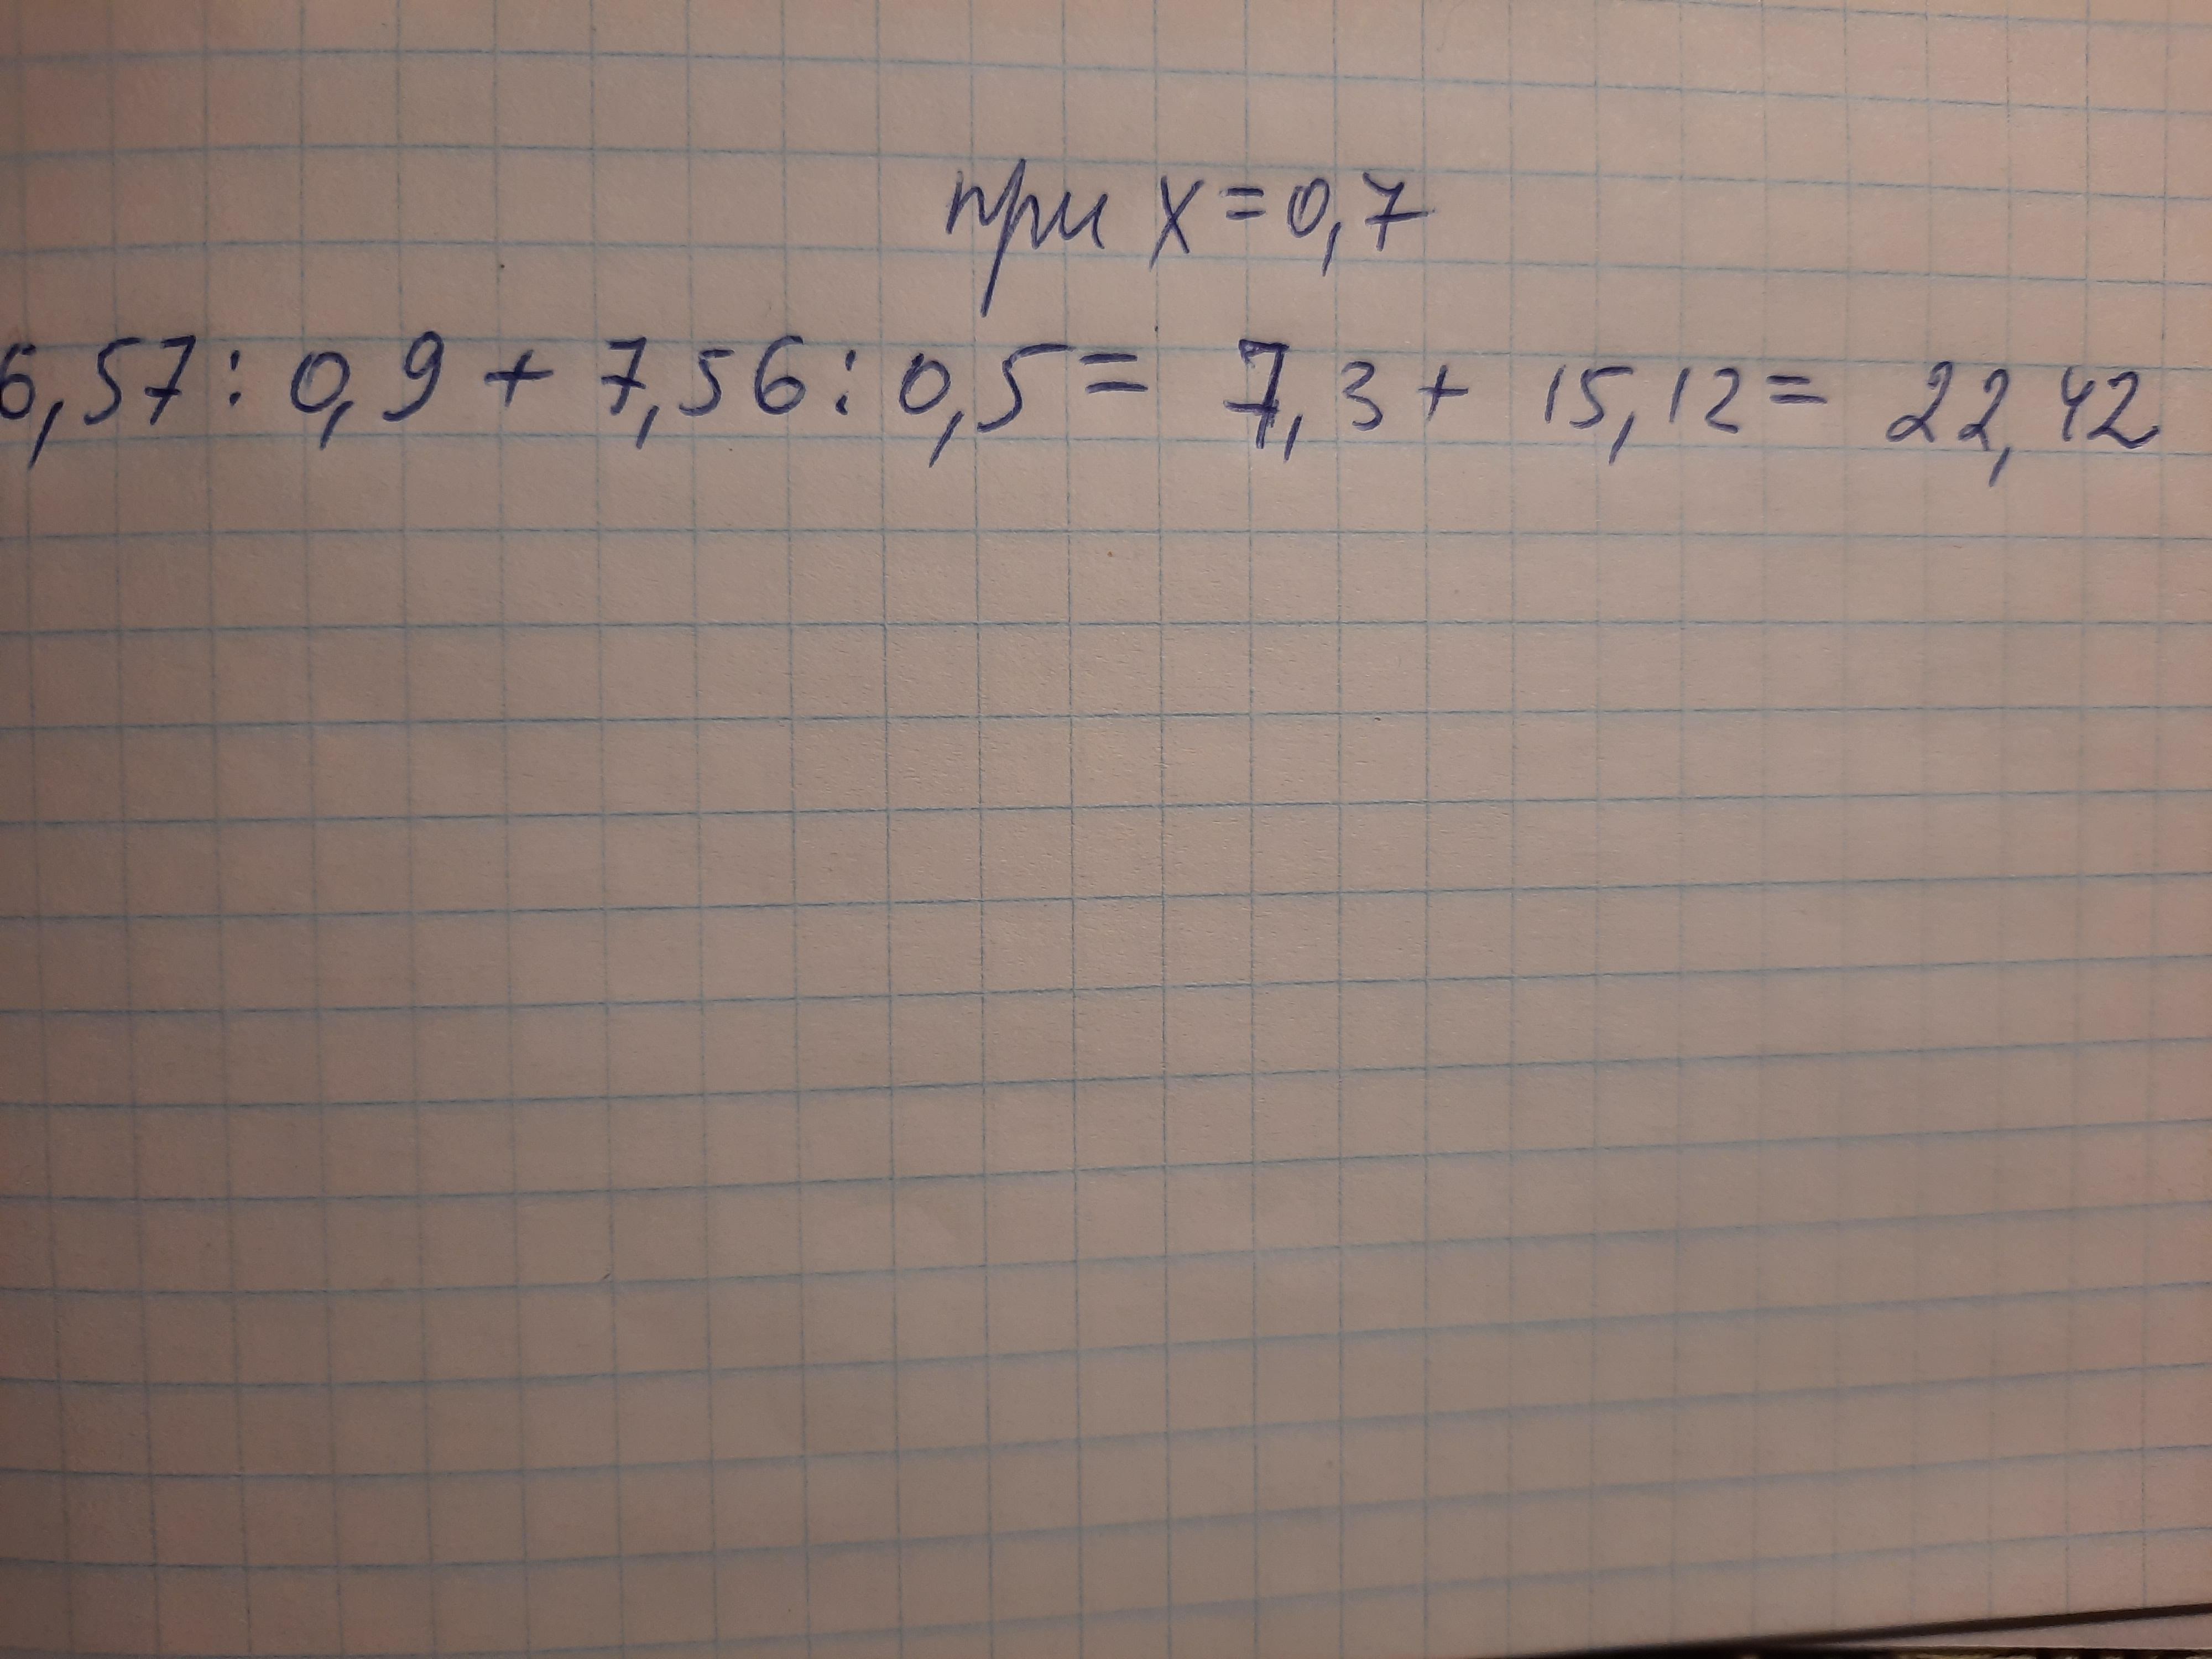 при x=0,7
6,57: 0,9 + 7,56: 0,5= 7,3+ 15,12= 22,42